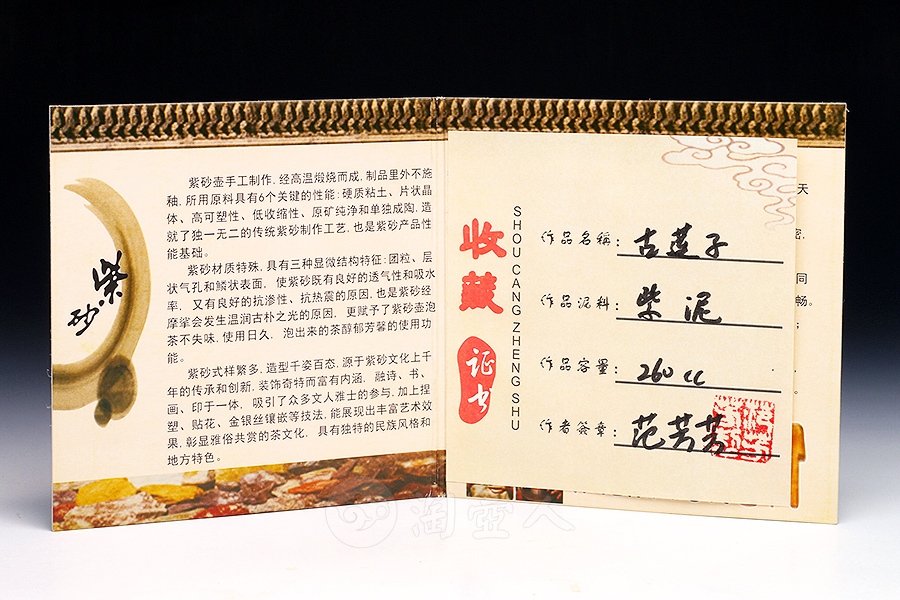 紫砂
紫砂壶手工制作，经高温煅烧而成，制品里外不施
釉，所用原料具有6个关键的性能：硬质粘土、片状晶
体、高可塑性、低收缩性、原矿纯净和单独成陶，造
就了独一无二的传统紫砂制作工艺，也是紫砂产品性
能基础。
紫砂材质特殊，具有三种显微结构特征：团粒、层
状气孔和鳞状表面，使紫砂既有良好的透气性和吸水
率，又有良好的抗渗性、抗热震的原因，也是紫砂经
摩挲会发生温润古朴之光的原因，更赋予了紫砂壶泡
茶不失味，使用日久，泡出来的茶醇郁芳馨的使用功
能。
紫砂式样繁多，造型千姿百态，源于紫砂文化上千
年的传承和创新，装饰奇特而富有内涵，融诗、书、
画、印于一体，吸引了众多文人雅士的参与，加上捏
塑、贴花、金银丝镶嵌等技法，能展现出丰富艺术效
果，彰显雅俗共赏的茶文化，具有独特的民族风格和
地方特色。
收藏
证书
SHOU CANG ZHENG SHU
作品名稱：古莲子
作品泥料：紫泥
作品容量：260cc
作者簽章：范芳芳
天
同
畅。
淘壶人